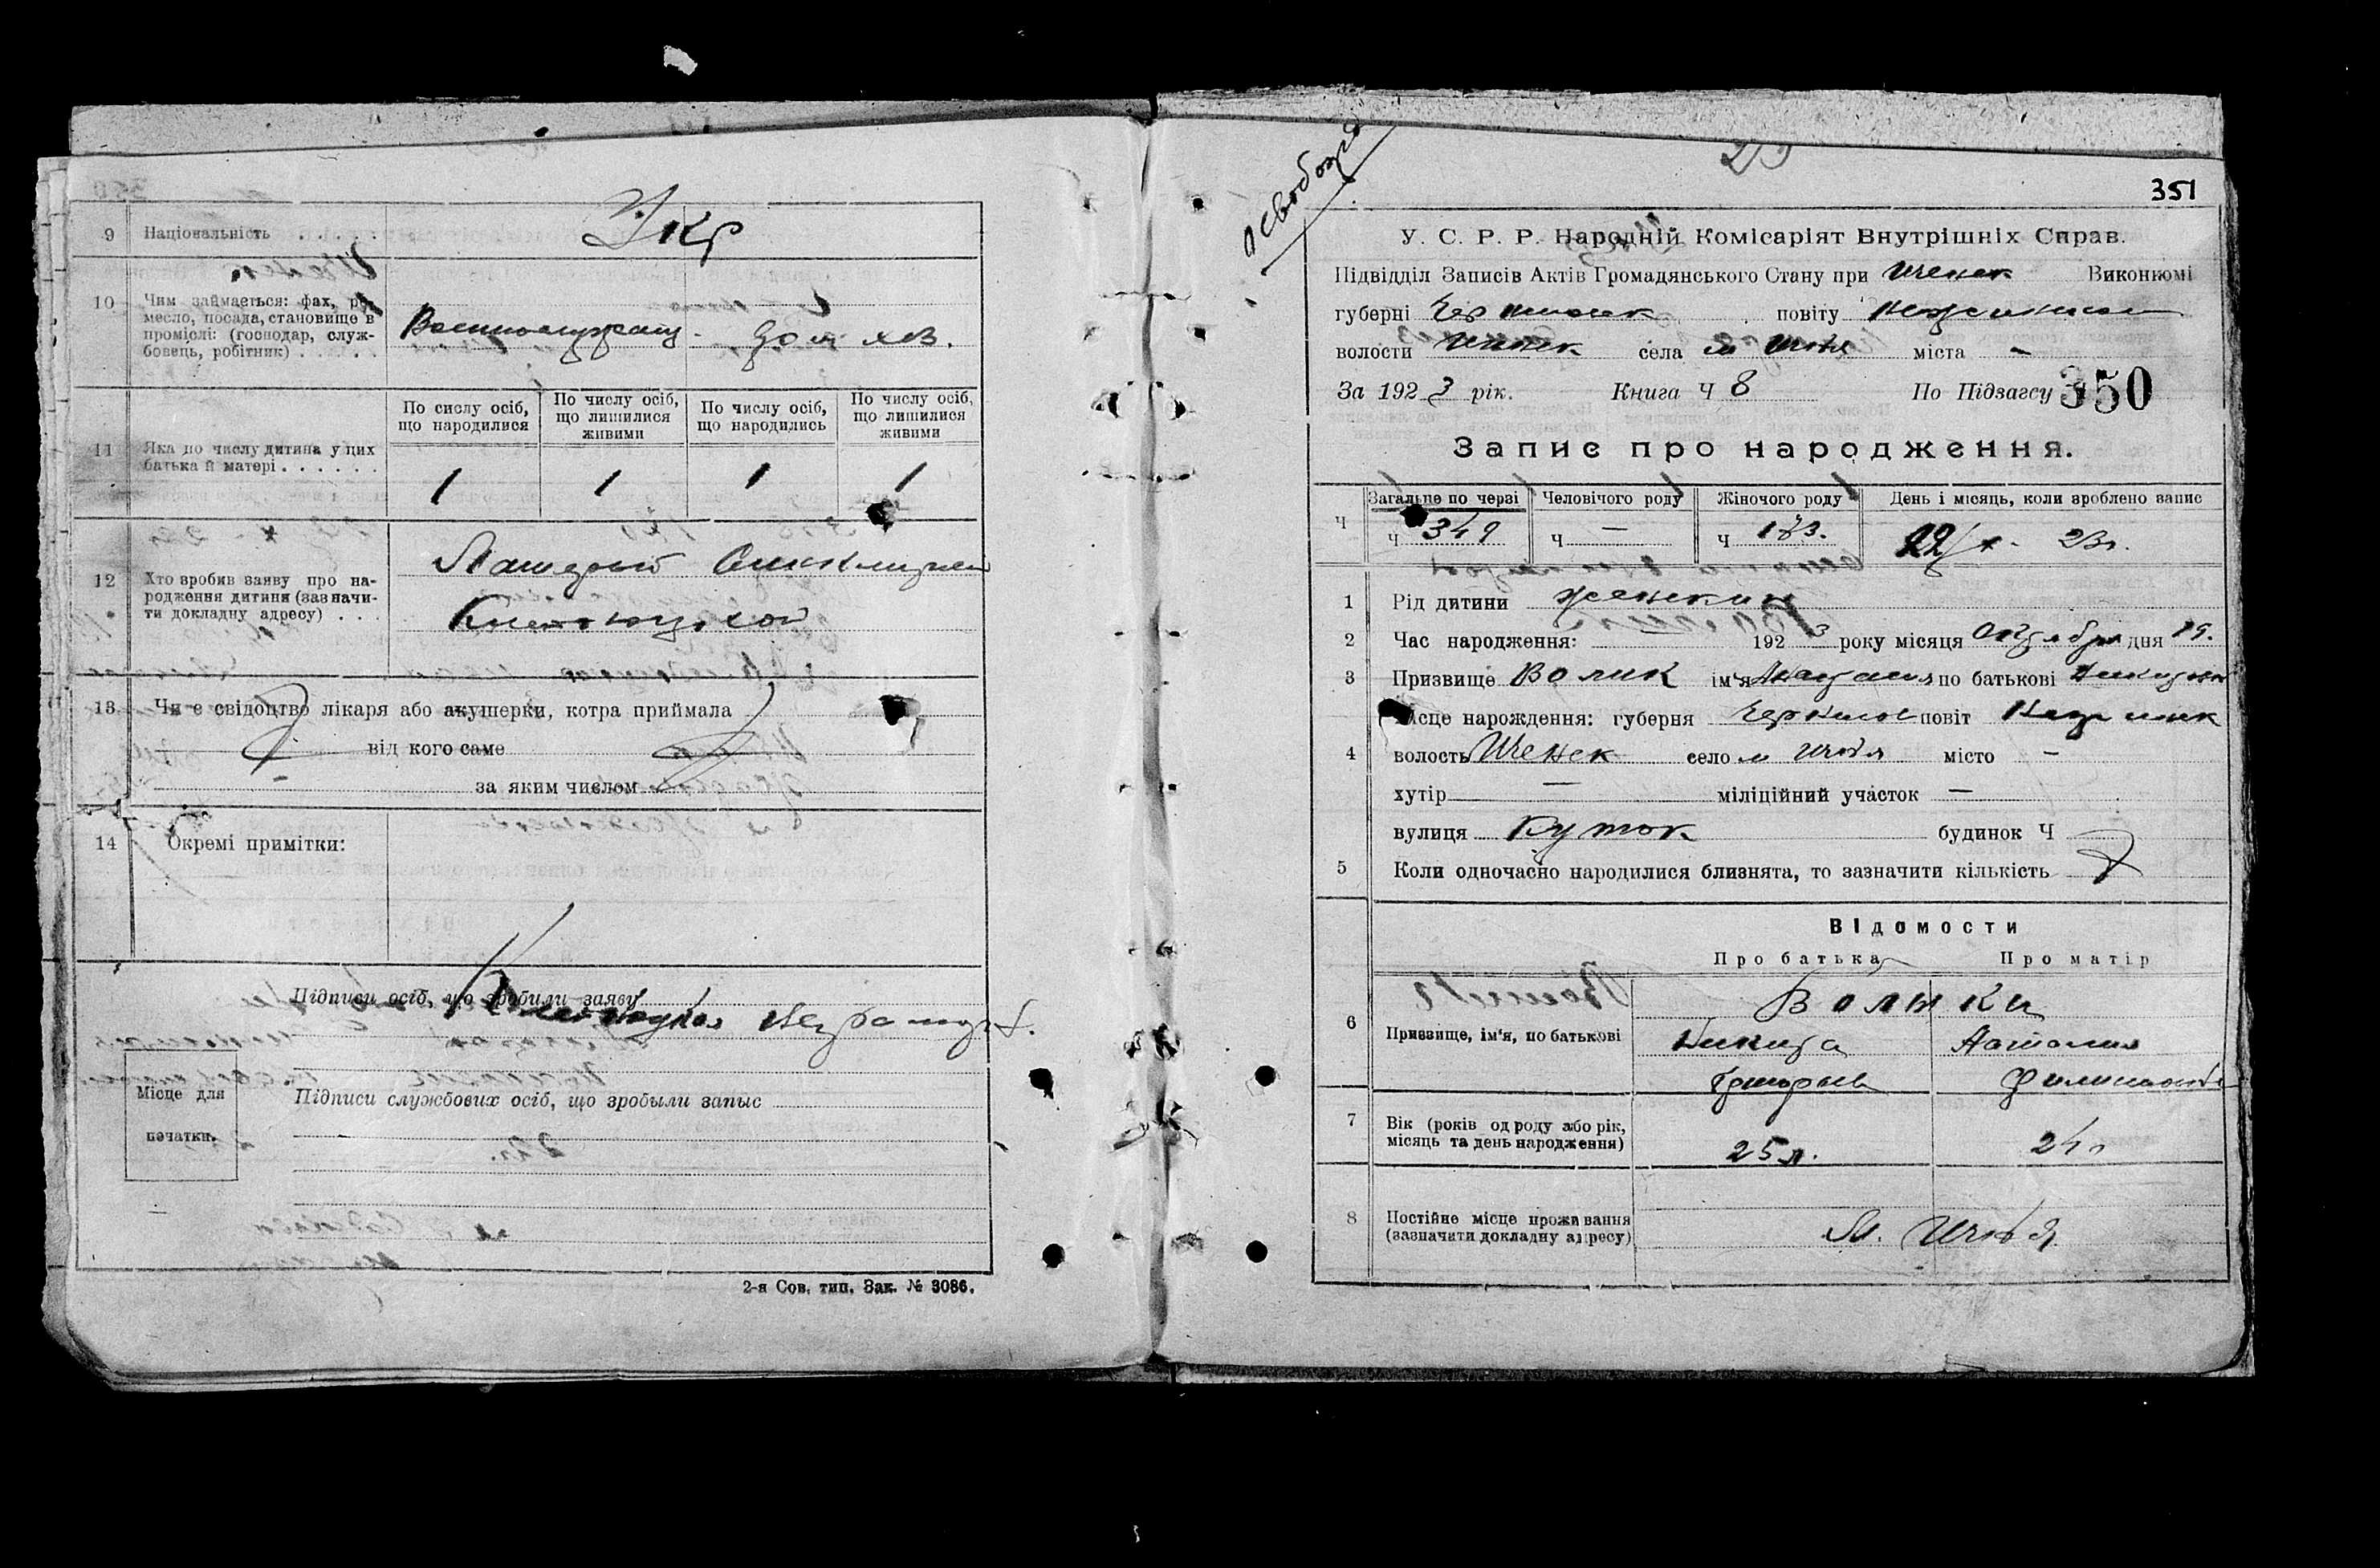 9 Національність . . . . . Укр
10 Чим займається: фах, ре-
месло, посада, становище в
проміслі: (господар, служ-
бовець, робітник) . . . . .
Военнослужащ - дом хоз.
11 Яка по числу дитина у цих
батька й матері . . . . . .
По сислу осіб,
що народилися
По числу осіб,
що лишилися
живими
По числу осіб,
що народились
По числу осіб,
що лишилися
живими
1 1 1 1
12 Хто зробив заяву про на-
родження дитини (зазначи-
ти докладну адресу) . . .
13 Чи є свідоцтво лікаря або акушерки, котра приймала
від кого саме
за яким числом
14 Окремі примітки:
Підписи осіб, що зробили заяву
Місце для
печатки.
Підписи службових осіб, що зробыли запыс
2-я Сов. тип. Зак. № 3086.
351
У. С. Р. Р. Народній Комісаріят Внутрішніх Справ.
Підвідділ Записів Актів Громадянського Стану при Ичнск Виконкомі
губерні Чернигск повіту
волости Ичнск села м Ичня міста -
За 1923 рік. Книга Ч 8 По Підзагсу 350
Запис про народження.
Загальне по черзі Человічого роду Жіночого роду День і місяць, коли зроблено запис
Ч Ч 349 Ч — Ч 173. 22/X - 23г.
1 Рід дитини женский
2 Час народження: 1923 року місяця Октября дня 19.
3 Призвище Волик ім'я по батькові Никитовн
4 Місце нарождення: губерня повіт
волость Иченск село м Ичня місто —
хутір — міліційний участок —
вулиця Куток будинок Ч
5 Коли одночасно народилися близнята, то зазначити кількість
Відомости
Про батька Про матір
6 Призвище, ім'я, по батькові
Волики
Никита
Григорьев
7 Вік (років од роду або рік,
місяць та день народження)
25 л. 24 г
8 Постійне місце проживання
(зазначити докладну адресу)
М. Ичня